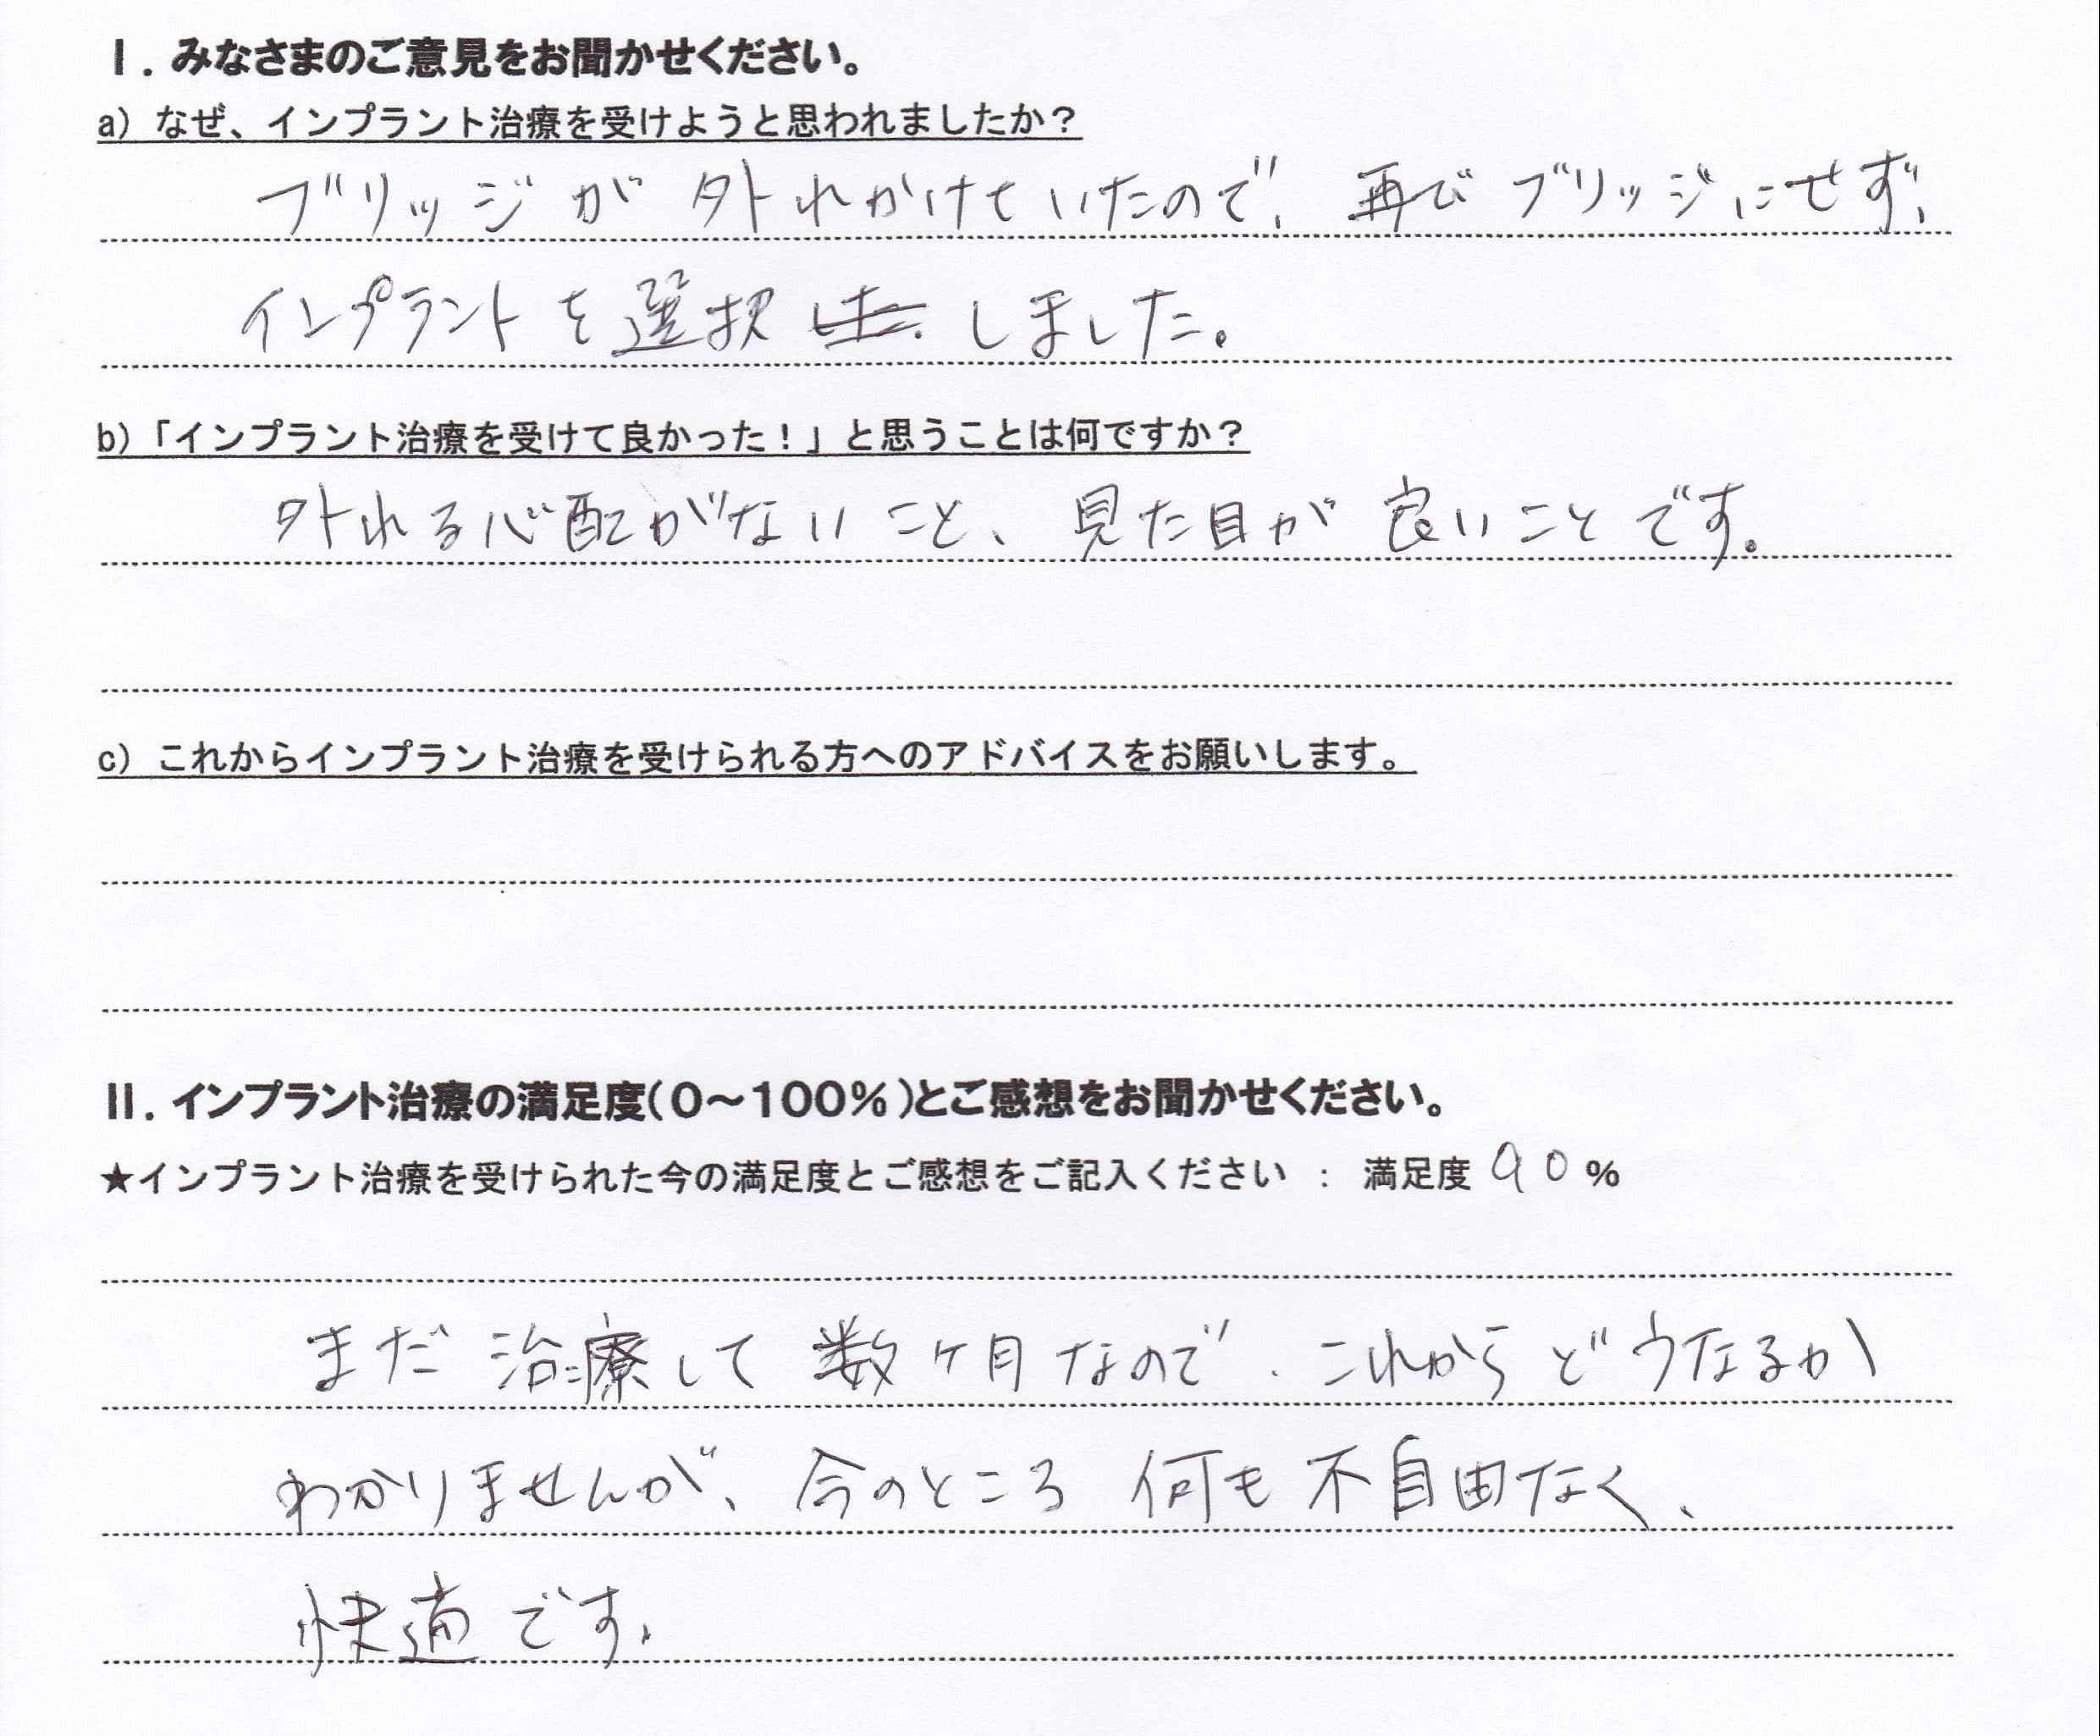 Ⅰ. みなさまのご意見をお聞かせください。
a) なぜ、インプラント治療を受けようと思われましたか？
ブリッジが外れかけていたので、再びブリッジにせず、
インプラントを選択 しました。
b)「インプラント治療を受けて良かった！」と思うことは何ですか？
外れる心配がないこと、見た目が良いことです。
c) これからインプラント治療を受けられる方へのアドバイスをお願いします。
Ⅱ. インプラント治療の満足度(0～100%)とご感想をお聞かせください。
★インプラント治療を受けられた今の満足度とご感想をご記入ください ： 満足度 90 %
まだ治療して数ヶ月なので、これからどうなるか
わかりませんが、今のところ何も不自由なく、
快適です。